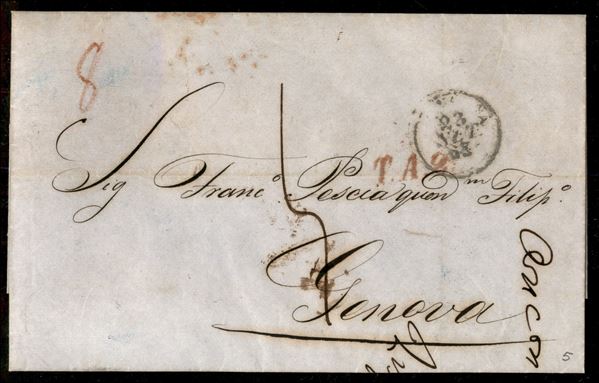 8
23
T.A.2
Sig Franc.o Pescia quon.m Filip.o
5
Genova
Ancon
5